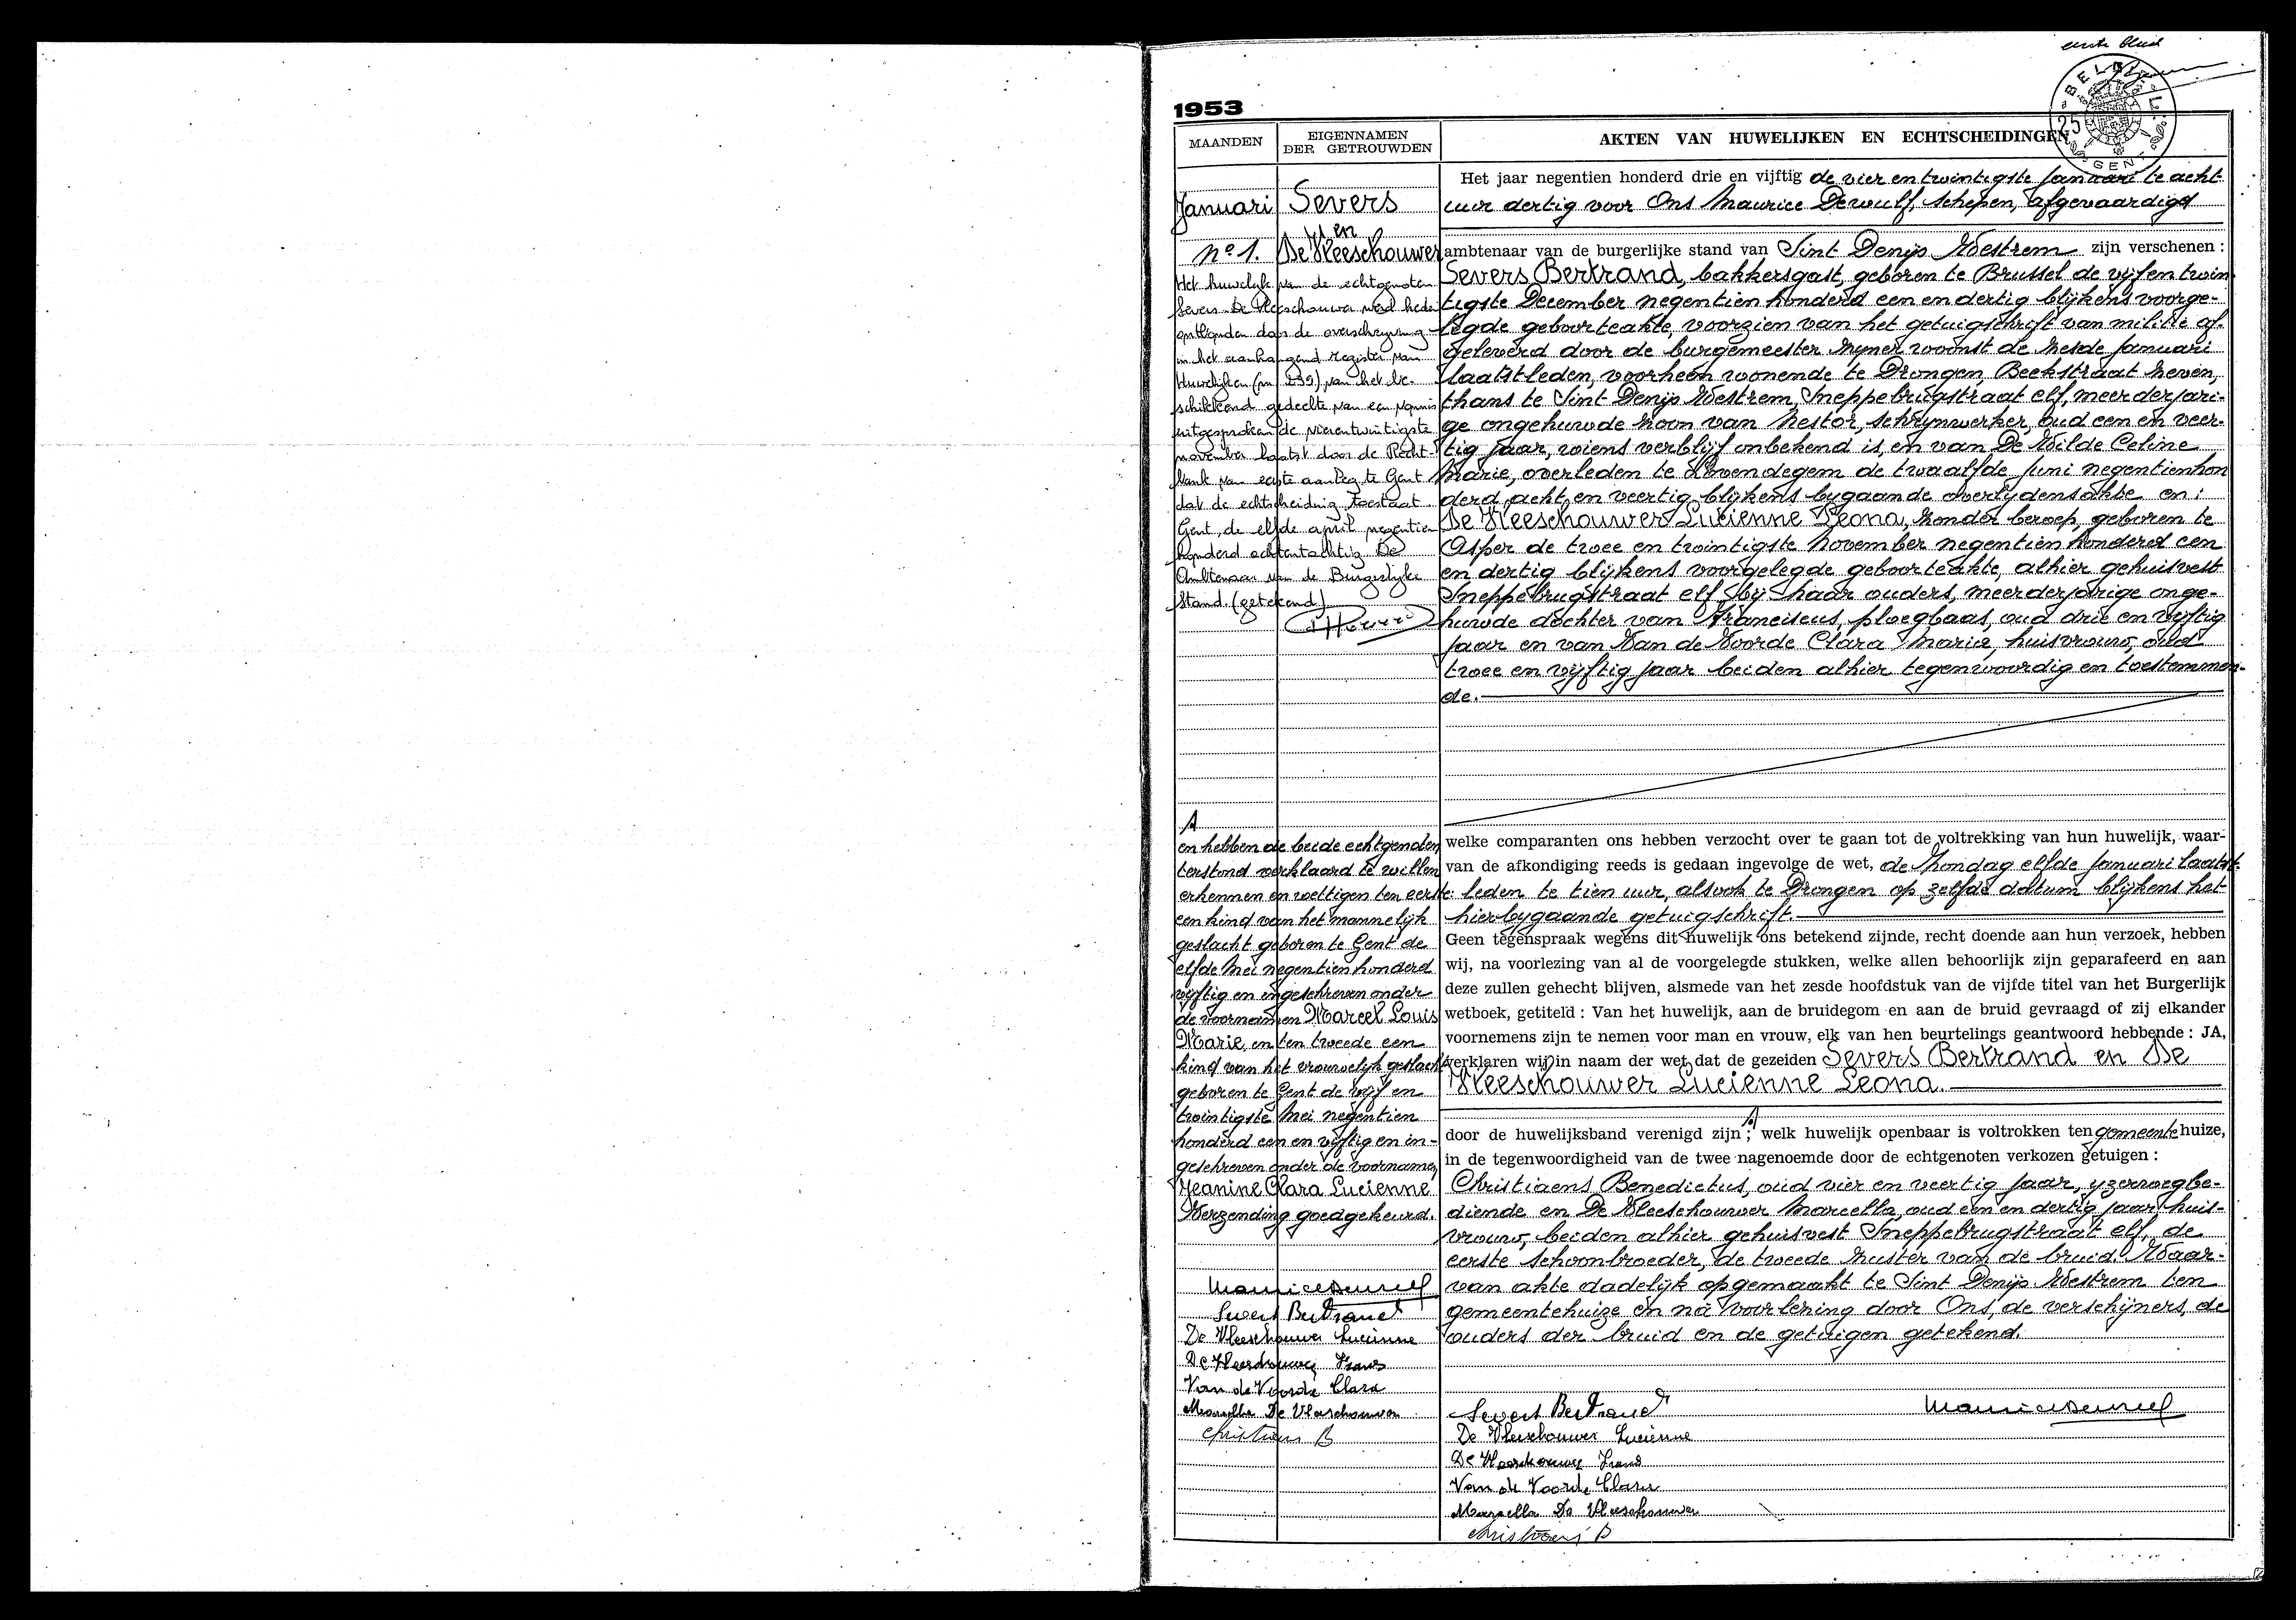 eerste blad
BELGIE
25
1953
MAANDEN
EIGENNAMEN
DER GETROUWDEN
AKTEN VAN HUWELIJKEN EN ECHTSCHEIDINGEN
Januari
Severs
en
De Vleeschouwer
No 1.
Het huwelijk van de echtgenoten
Severs De Vleeschouwer werd heden
ontbonden door de overschrijving
in het aanhangend register van
Huwelijken (nr 239) van het be-
schikkend gedeelte van een vonnis
uitgesproken de vierentwintigste
november laatst door de Recht-
bank van eerste aanleg te Gent
dat de echtscheiding toestaat
Gent, de elfde april negentien
honderd achtentachtig De
Ambtenaar van de Burgerlijke
Stand. (getekend)
Het jaar negentien honderd drie en vijftig de vier en twintigste Januari te acht
uur dertig voor Ons Maurice Dewulf, schepen, afgevaardigd
ambtenaar van de burgerlijke stand van Sint Denijs Westrem zijn verschenen :
Severs Bertrand, bakkersgast, geboren te Brussel de vijf en twin
tigste December negentien honderd een en dertig blijkens voorge-
legde geboorteakte, voorzien van het getuigschrift van militie af-
geleverd door de burgemeester zijner woonst de zesde Januari
laatstleden, voorheen wonende te Drongen, Beekstraat zeven,
thans te Sint Denijs Westrem, Sneppebrugstraat elf, meerderjari-
ge ongehuwde zoon van Nestor, schrijnwerker, oud een en veer-
tig jaar, wiens verblijf onbekend is, en van De Wilde Celine
Marie, overleden te Lovendegem de twaalfde Juni negentienhon
derd acht en veertig blijkens bygaande overlydensakte en :
De Vleeschouwer Lucienne Leona, zonder beroep, geboren te
Asper de twee en twintigste November negentien honderd een
en dertig blijkens voorgelegde geboorteakte, alhier gehuisvest
Sneppebrugstraat elf bij haar ouders, meerderjarige onge-
huwde dochter van Franciscus, ploegbaas, oud drie en vijftig
jaar en van Van de Voorde Clara Maria, huisvrouw, oud
twee en vijftig jaar beiden alhier tegenwoordig en toestemmen-
de.
welke comparanten ons hebben verzocht over te gaan tot de voltrekking van hun huwelijk, waar-
van de afkondiging reeds is gedaan ingevolge de wet, de Zondag elfde Januari laatst-
leden te tien uur, alsook te Drongen op zelfde datum blijkens het
hierbygaande getuigschrift.
Geen tegenspraak wegens dit huwelijk ons betekend zijnde, recht doende aan hun verzoek, hebben
wij, na voorlezing van al de voorgelegde stukken, welke allen behoorlijk zijn geparafeerd en aan
deze zullen gehecht blijven, alsmede van het zesde hoofdstuk van de vijfde titel van het Burgerlijk
wetboek, getiteld : Van het huwelijk, aan de bruidegom en aan de bruid gevraagd of zij elkander
voornemens zijn te nemen voor man en vrouw, elk van hen beurtelings geantwoord hebbende : JA,
verklaren wij in naam der wet dat de gezeiden Severs Bertrand en De
Vleeschouwer Lucienne Leona.
door de huwelijksband verenigd zijn ; welk huwelijk openbaar is voltrokken ten gemeente huize,
in de tegenwoordigheid van de twee nagenoemde door de echtgenoten verkozen getuigen :
Christiaens Benedictus, oud vier en veertig jaar, yzerwegbe-
diende en De Vleeschouwer Marcella, oud een en dertig jaar huis-
vrouw, beiden alhier gehuisvest Sneppebrugstraat elf, de
eerste schoonbroeder, de tweede zuster van de bruid. Waar-
van akte dadelijk opgemaakt te Sint Denijs Westrem ten
gemeentehuize en na voorlezing door Ons, de verschijners, de
ouders der bruid en de getuigen getekend.
A
en hebben de beide echtgenoten
terstond verklaard te willen
erkennen en wettigen ten eerste:
een kind van het mannelijk
geslacht geboren te Gent de
elfde Mei negentien honderd
vijftig en ingeschreven onder
de voornamen Marcel Louis
Marie, en ten tweede een
kind van het vrouwelijk geslacht
geboren te Gent de vijf en
twintigste Mei negentien
honderd een en vijftig en in-
geschreven onder de voornamen
Jeanine Clara Lucienne
Verzending goedgekeurd.
Maurice Dewulf
Severs Bertrand
De Vleeschouwer Lucienne
De Vleeschouwer Frans
Van de Voorde Clara
Marcella De Vleeschouwer
Christiaens B
Severs Bertrand
Maurice Dewulf
De Vleeschouwer Lucienne
De Vleeschouwer Frans
Van de Voorde Clara
Marcella De Vleeschouwer
Christiaens B